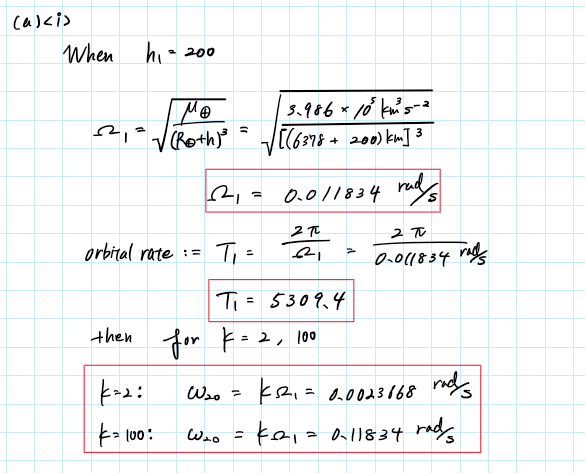 (a)<i>
When h₁ = 200
Ω₁ = √(μ⊕/(R⊕+h)³) = √(3.986 × 10⁵ km³s⁻²/[(6378 + 200)km]³)
Ω₁ = 0.011834 rad/s
orbital rate := T₁ = 2π/Ω₁ = 2π/0.011834 rad/s
T₁ = 5309.4
then for k = 2, 100
k=2: ω₂₀ = kΩ₁ = 0.0023668 rad/s
k=100: ω₂₀ = kΩ₁ = 0.11834 rad/s